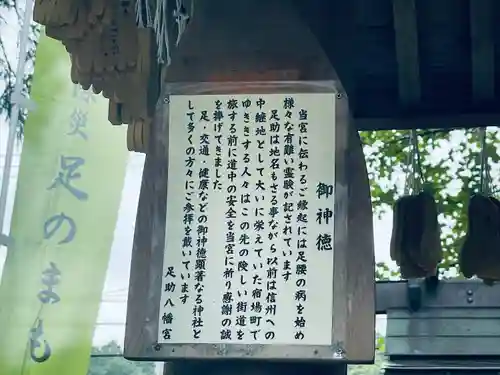 御神徳
当宮に伝わるご縁起には足腰の病を始め
様々な有難い霊験が記されています
足助は地名もさる事ながら以前は信州への
中継地として大いに栄えていた宿場町で
ゆききする人々はこの先の険しい街道を
旅する前に道中の安全を当宮に祈り感謝の誠
を捧げてきました
足・交通・健康などの御神徳顕著なる神社と
して多くの方々にご参拝を戴いています
足助八幡宮
災 足のまも